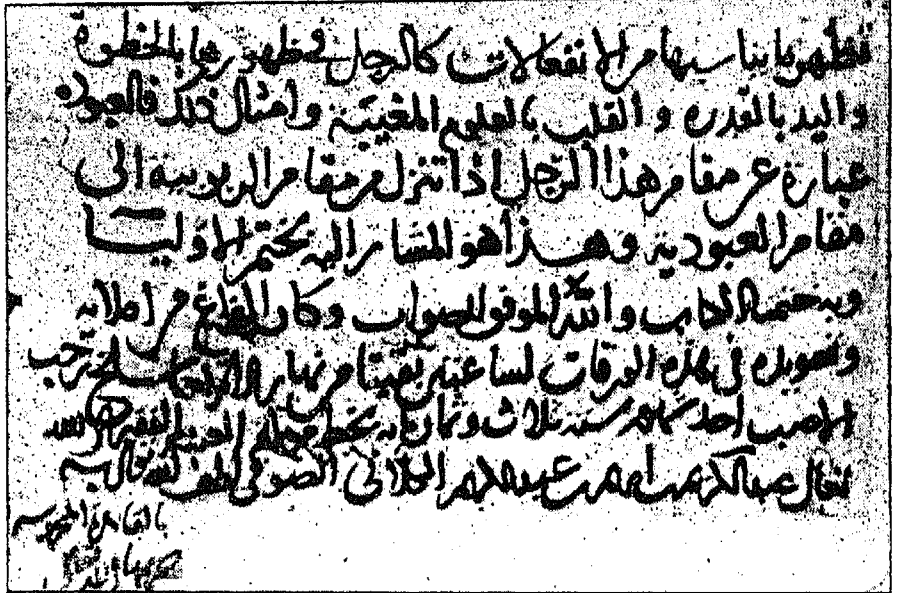 فتظهر بما يناسبها من الانفعالات كالرجل في ظهورها بالخطوة
واليد بالقدرة والقلب بالعلوم المغيبة وامثال ذلك فالعبودة
عبارة عن مقام هذا الرجل اذا تنزل من مقام الربوبية الى
مقام العبودية وهذا هو المشار اليه بختم الاوليا
وبه ختمنا الكتاب والله الموفق للصواب وكان الفراغ من املائه
وتسويده في هذه الورقات لساعتين بقيتا من نهار سلخ رجب
الاصب احد سنة ثلاث وثمانمائة بخط ممليه العبد الفقير الى الله
تعالى عبد الكريم بن ابراهيم بن عبد الكريم الكيلاني الصوفي لطف الله به
بالقاهرة المحروسة